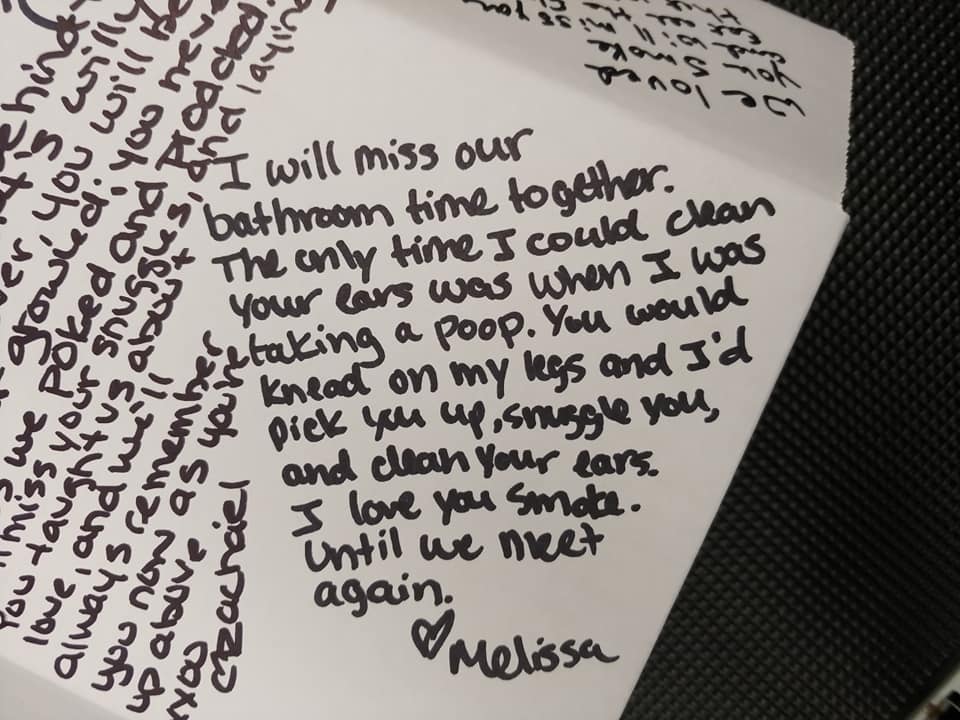 I will miss our
bathroom time together.
The only time I could clean
your ears was when I was
taking a poop. You would
knead on my legs and I'd
pick you up, snuggle you,
and clean your ears.
I love you Smoke.
Until we meet
again.
♡ Melissa
We loved
you Smoke
and will miss
growled. You will
we poked and you
miss your snuggles,
You taught us about
love, and we'll
always remember
you now
up above as you're
xoxo
Rachael